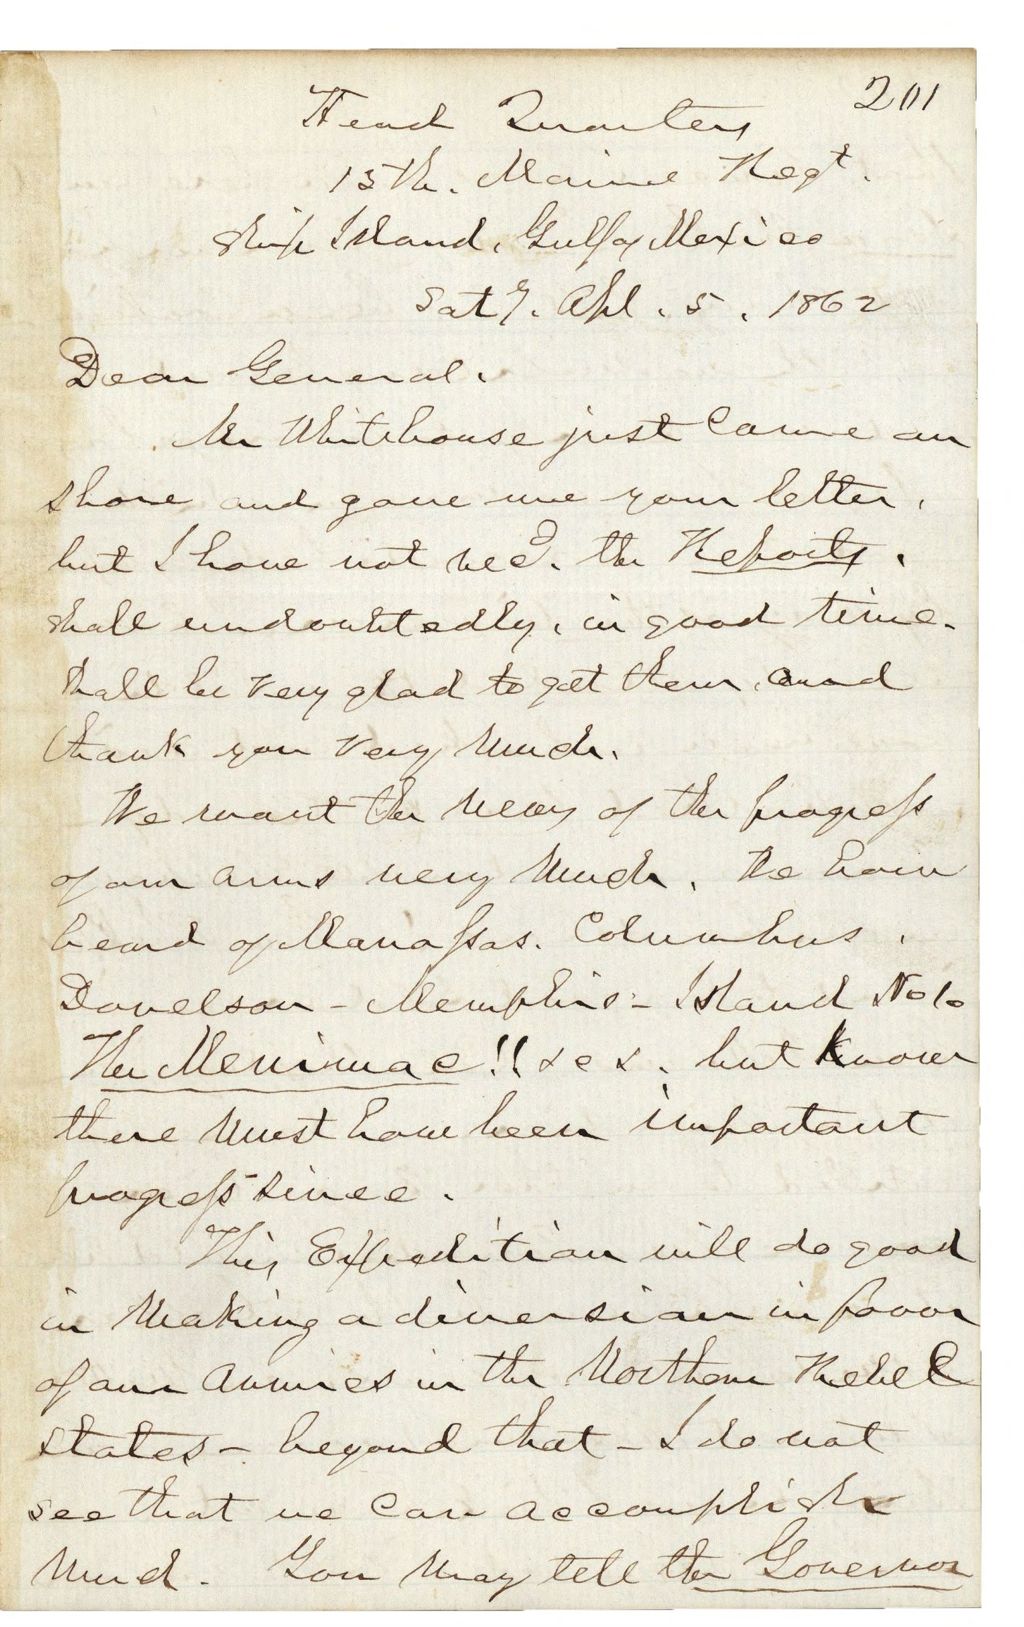 201
Head Quarters
15th. Maine Regt.
Ship Island, Gulf of Mexico
Saty. Apl. 5, 1862
Dear General.
Mr Whitehouse just came on
shore and gave me your letter,
but I have not recd. the Reports.
shall undoubtedly, in good time.
Shall be very glad to get them, and
thank you very much.
We want the news of the progress
of our arms very much. We have
heard of Manassas. Columbus,
Donelson - Memphis - Island No 10
The Merrimac!! &c &. but know
there must have been important
progress since.
This Expedition will do good
in making a diversion in favor
of our Armies in the Northern Rebel
states - beyond that - I do not
see that we can accomplish
much. You may tell the Governor